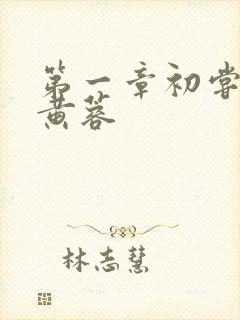 第一章初尝
黄蓉
林志慧